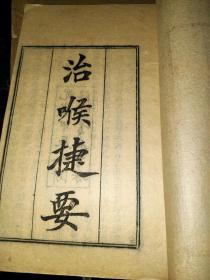 治喉捷要